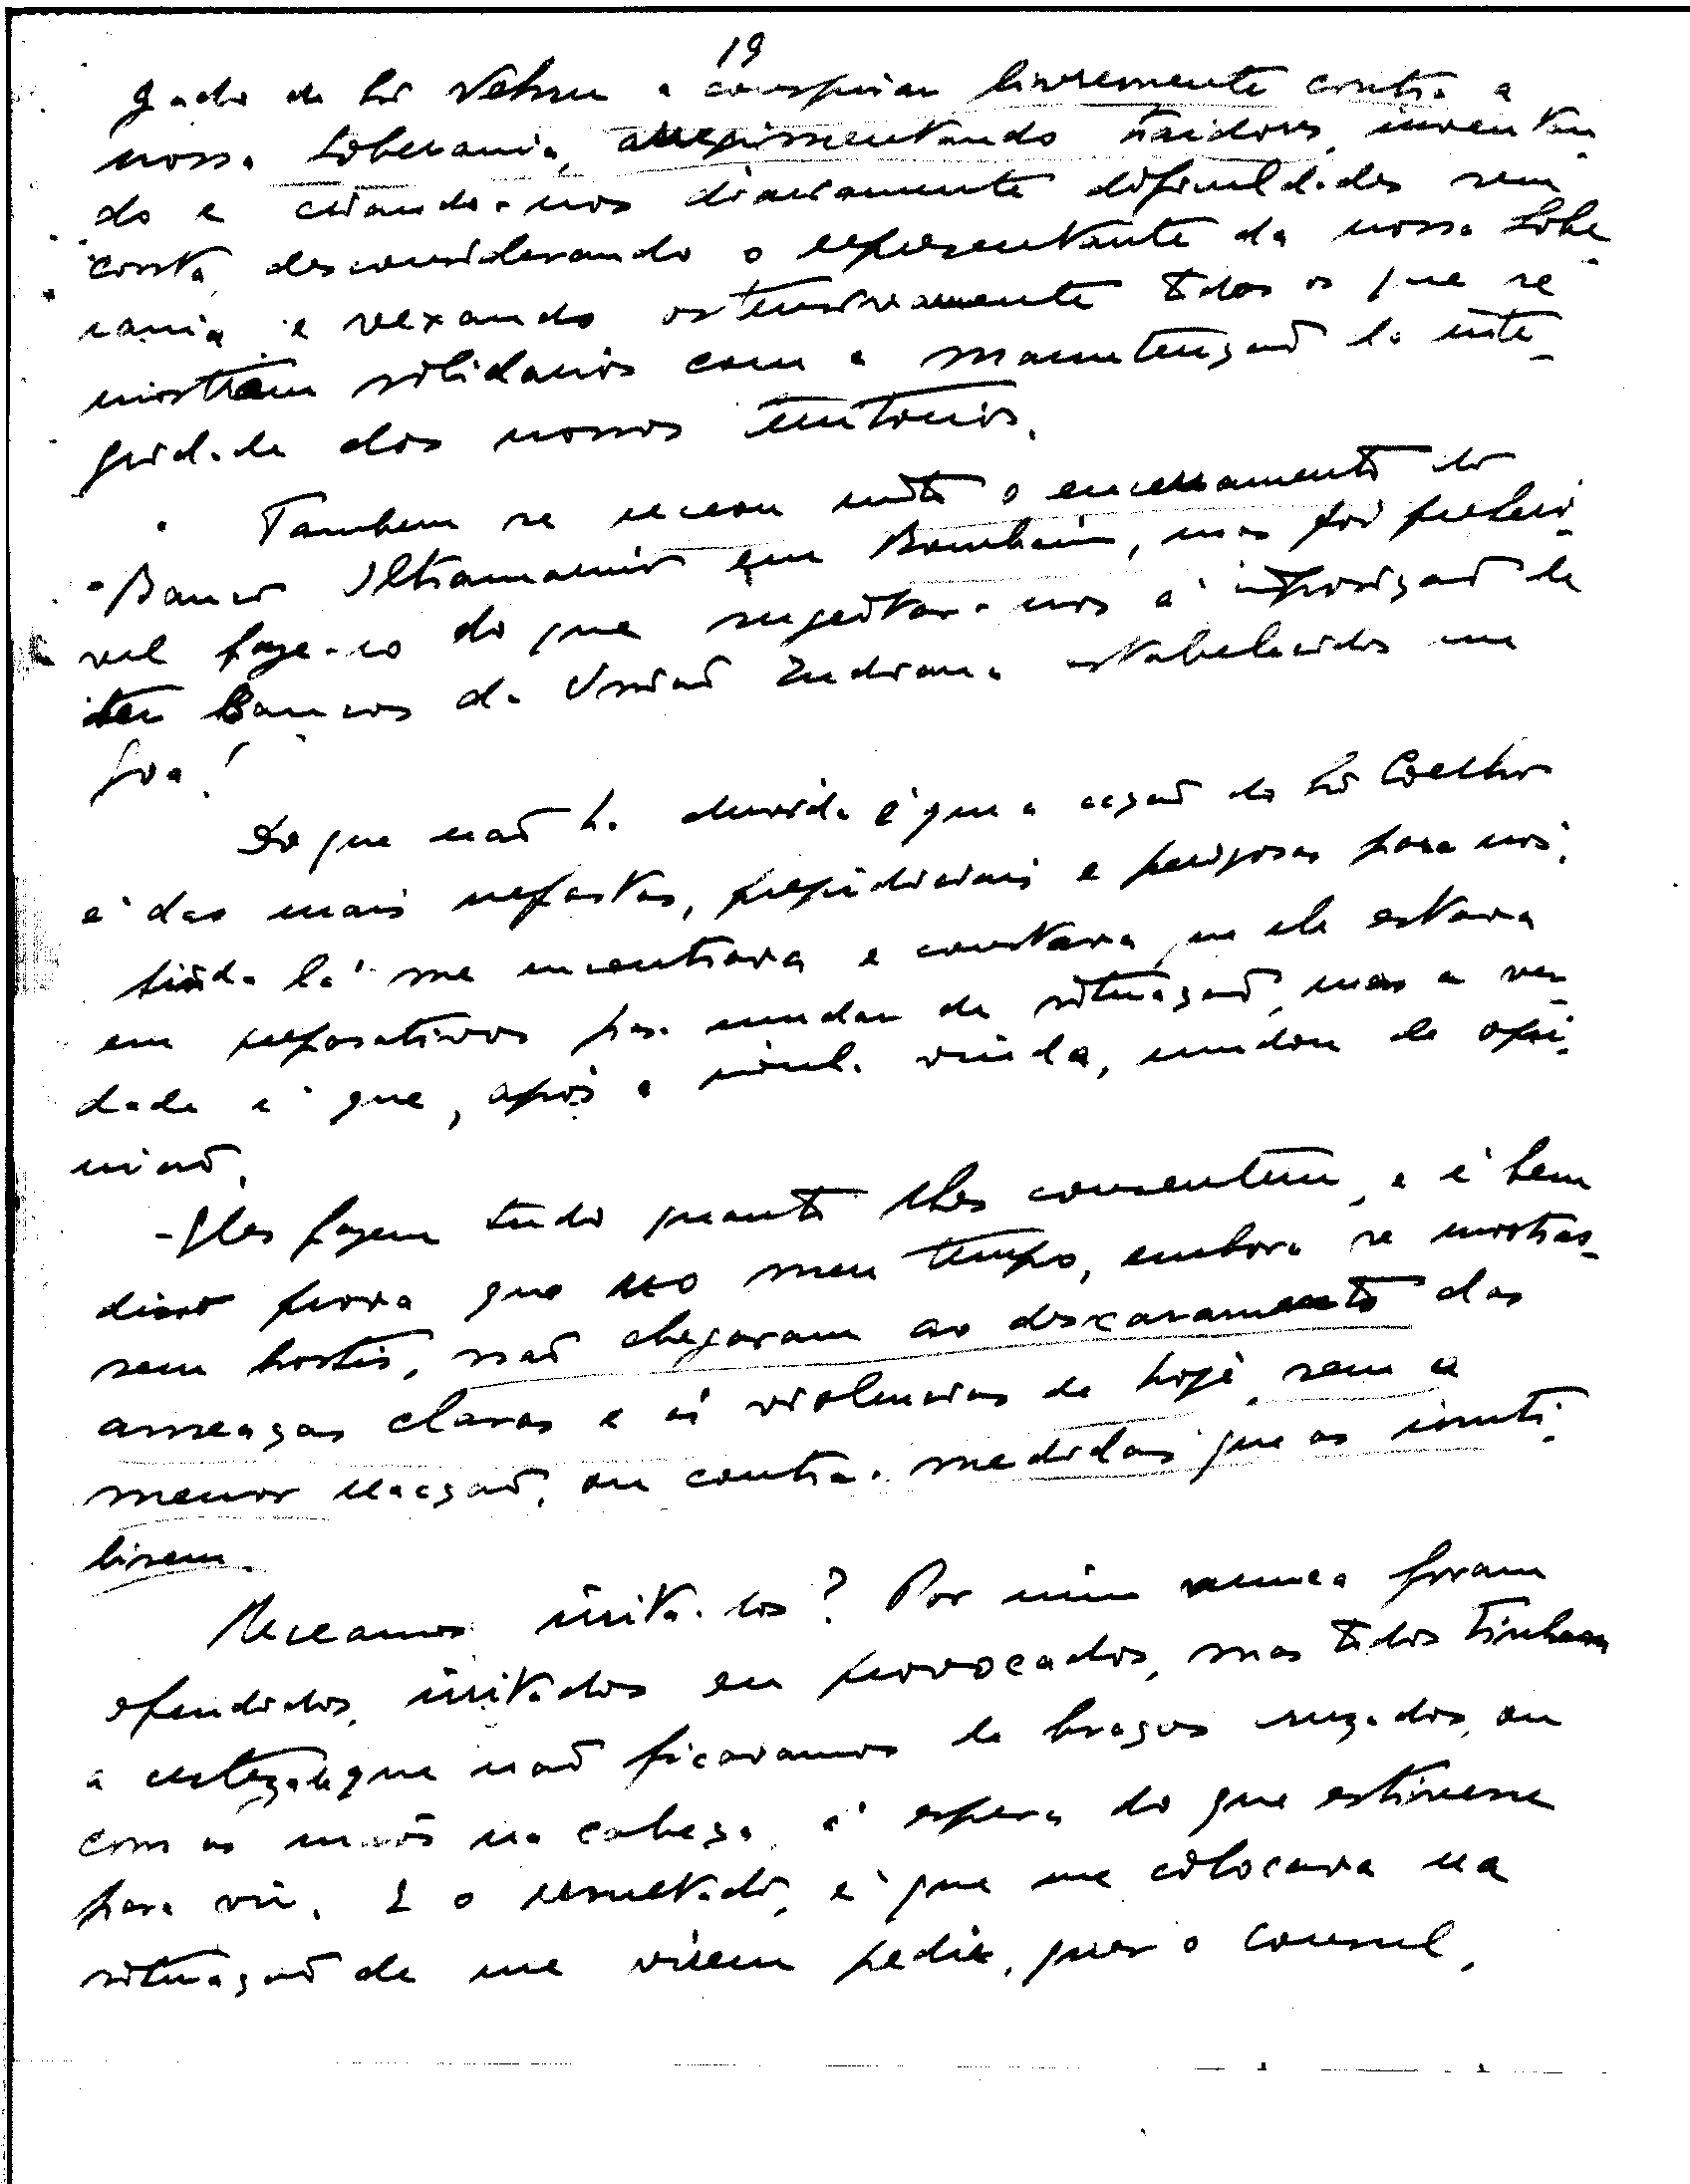 19
gado do Sr Nehru a conspirar livremente contra a
nossa soberania, arregimentando traidores, inventan-
do e criando-nos diariamente dificuldades sem
conta, desconsiderando o representante da nossa sobe-
rania e vexando ostensivamente todos os que se
mostram solidarios com a manutenção da inte-
gridade dos nossos territorios.
Tambem se receou muito o encerramento do
Banco Ultramarino em Bombaim, mas foi preferi-
vel faze-lo do que sugeitar-nos á imposição de
ter Bancos da União Indiana estabelecidos em
Goa!
Do que não ha duvida é que a acção do Sr Coelho
é das mais nefastas, prejudiciais e perigosas para nós.
Ainda lá me encontrava e constava que ele estava
em preparativos para mudar de situação, mas a ver-
dade é que, após a minha vinda, mudou de opi-
nião.
-Eles fazem tudo quanto lhes consentem, e é bem
disso prova que no meu tempo, embora se mostras-
sem hostis, não chegaram ao descaramento das
ameaças claras e ás violencias de hoje, sem a
menor reacção, ou contra-medidas que as inuti-
lisem.
Receamos irrita-los? Por mim nunca foram
ofendidos, irritados ou provocados, mas todos tinham
a certeza de que não ficavamos de braços cruzados, ou
com as mãos na cabeça, á espera do que estivesse
para vir. E o resultado, é que me colocava na
situação de me virem pedir, quer o consul,